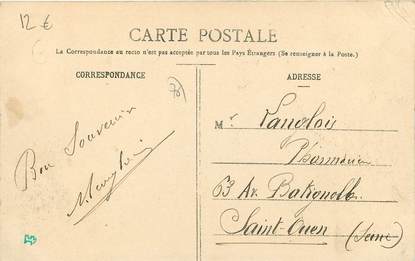 12 €
CARTE POSTALE
La Correspondance au recto n'est pas acceptée par tous les Pays Étrangers (Se renseigner à la Poste.)
CORRESPONDANCE
ADRESSE
Bon Souvenir
Mr Langlois
63 Av. Batignolles
Saint-Ouen (Seine)